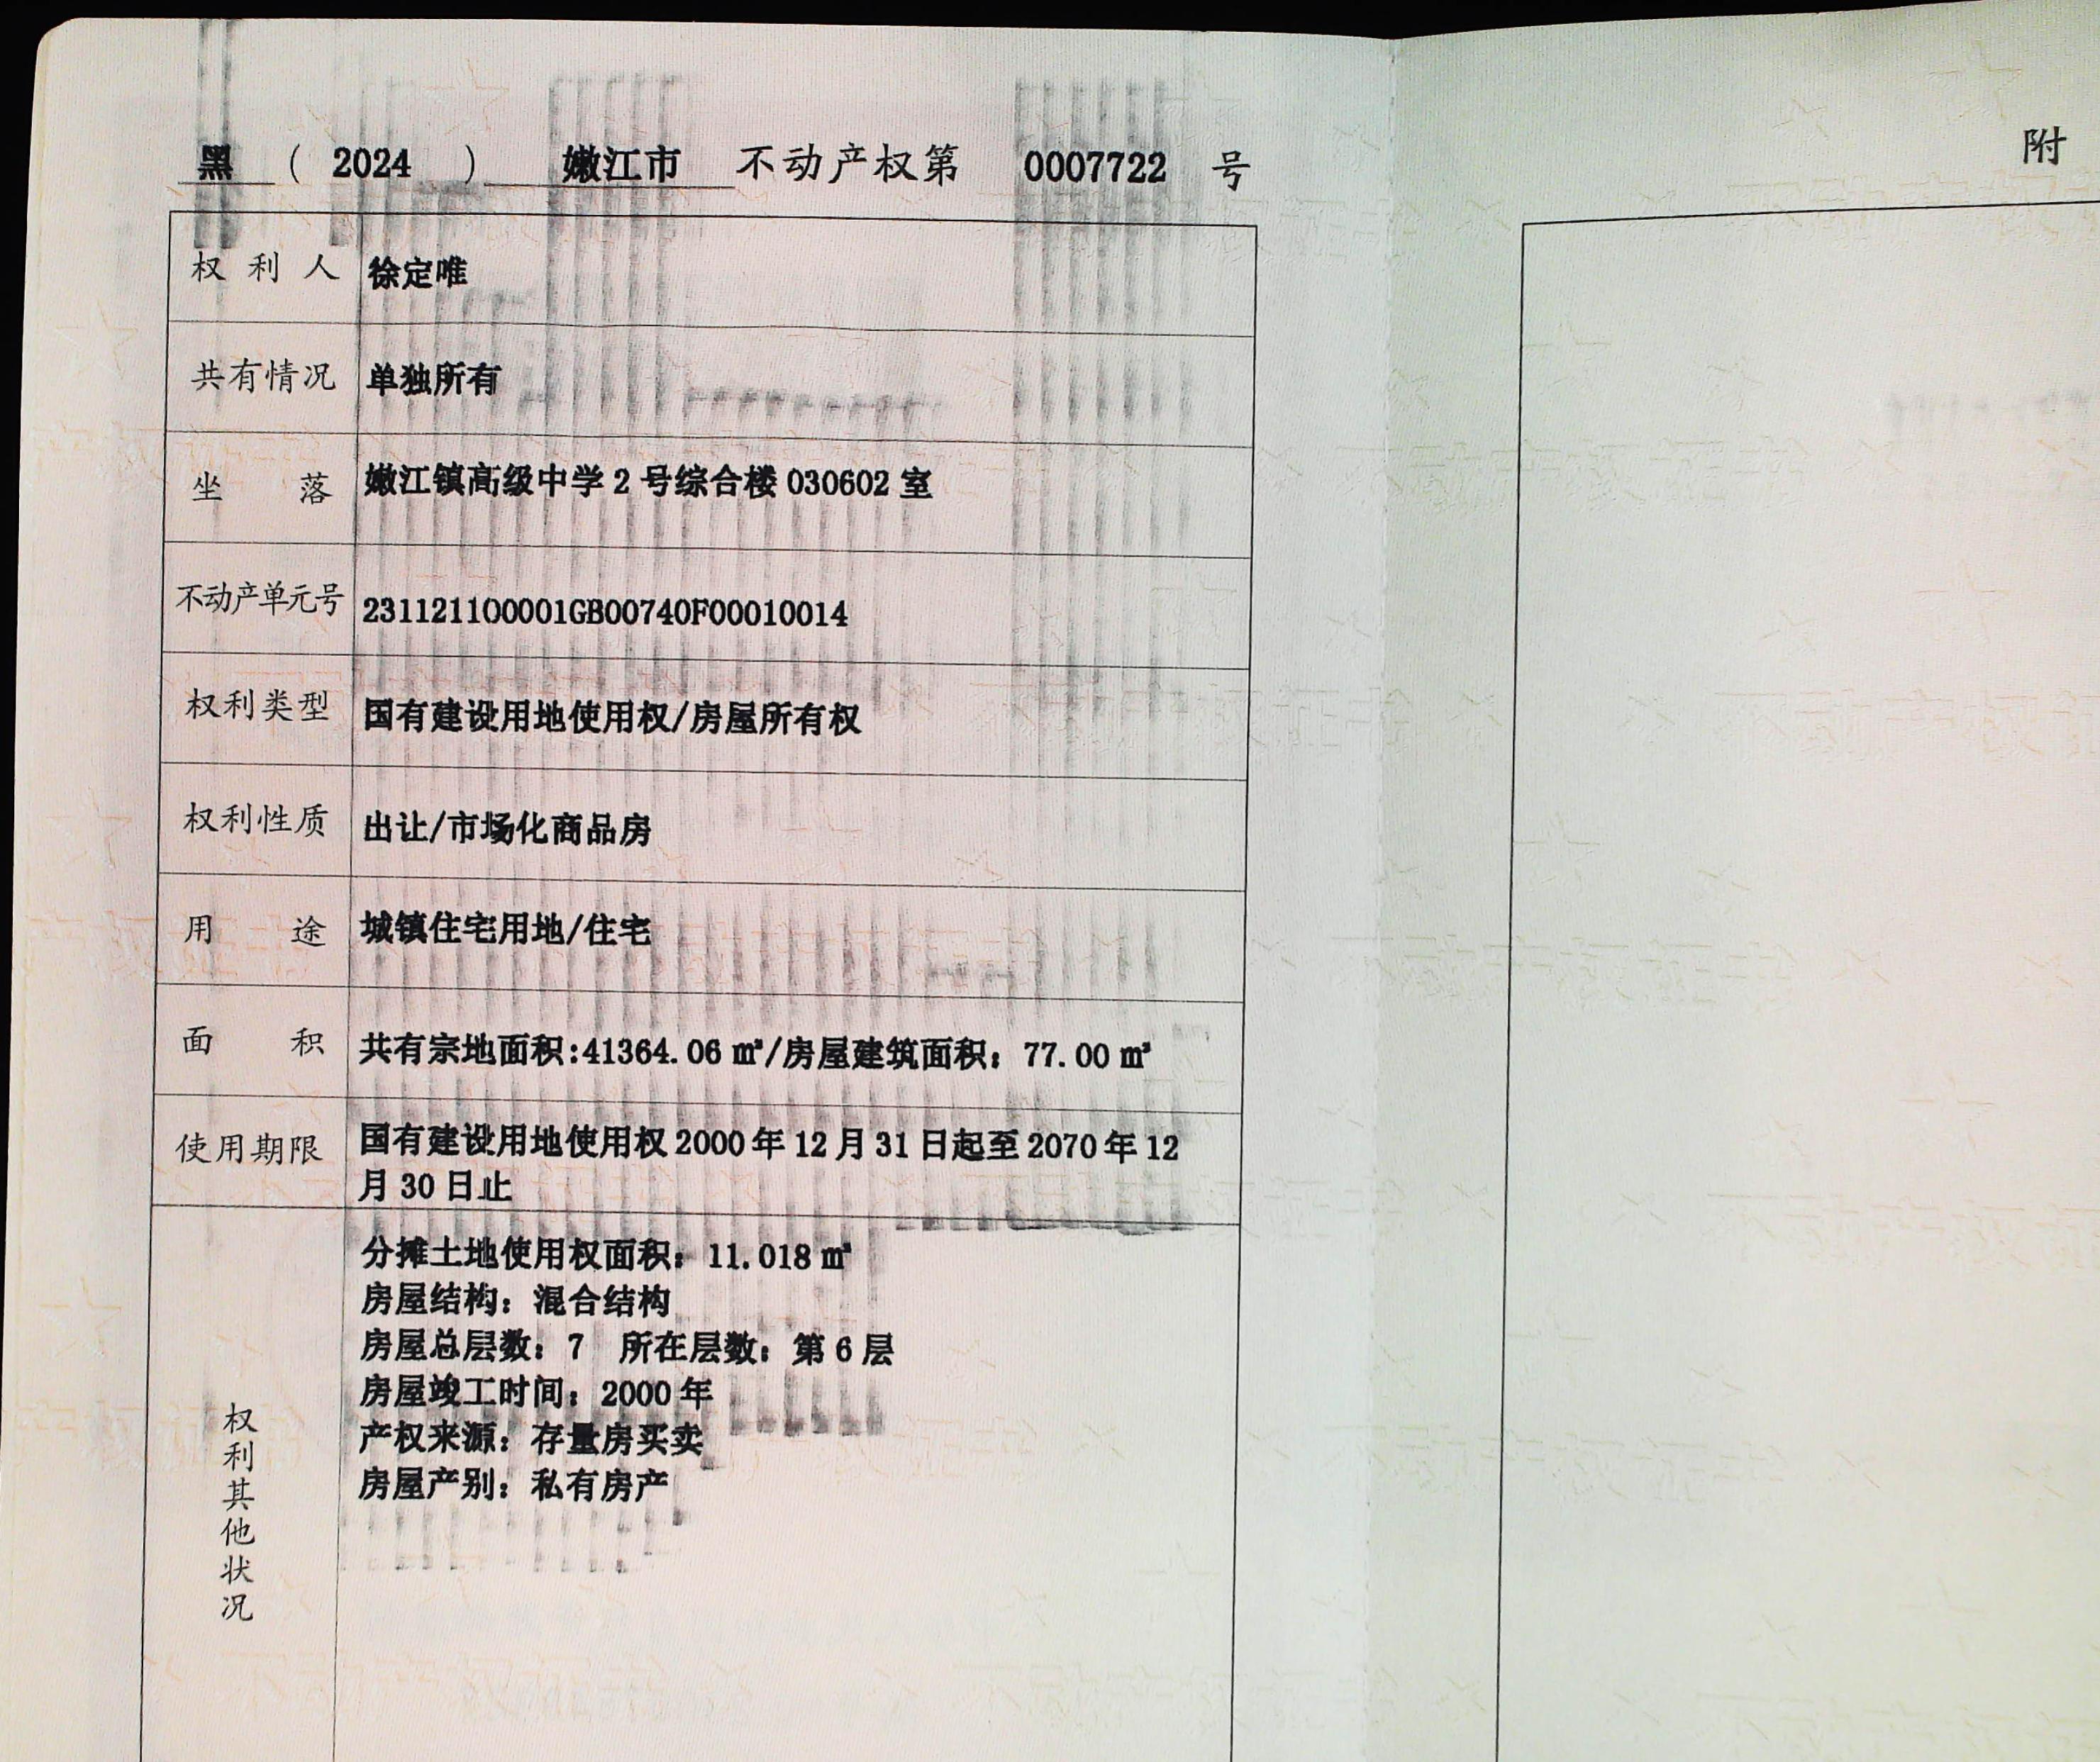 黑 ( 2024 ) 嫩江市 不动产权第 0007722 号
权利人 徐定唯
共有情况 单独所有
坐落 嫩江镇高级中学2号综合楼030602室
不动产单元号 231121100001GB00740F00010014
权利类型 国有建设用地使用权/房屋所有权
权利性质 出让/市场化商品房
用途 城镇住宅用地/住宅
面积 共有宗地面积:41364.06㎡/房屋建筑面积：77.00㎡
使用期限 国有建设用地使用权2000年12月31日起至2070年12
月30日止
权利其他状况
分摊土地使用权面积：11.018㎡
房屋结构：混合结构
房屋总层数：7 所在层数：第6层
房屋竣工时间：2000年
产权来源：存量房买卖
房屋产别：私有房产
附